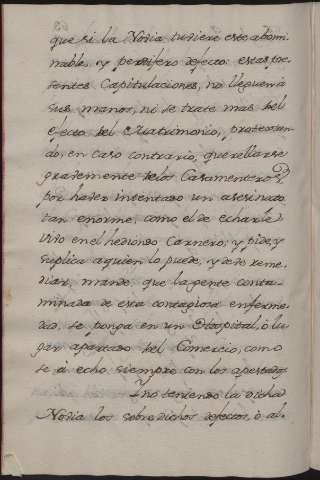 que si la Novia tuviere este abomi-
nable, y pestifero defecto: estas pre-
sentes Capitulaciones, no lleguen à
sus manos, ni se trate mas del
efecto del Matrimonio, protestan-
do, en caso contrario, querellarse
gravemente de los Casamenteros,
por haver intentado un asesinato
tan enorme, como el de echarle
vivo en el hediondo Carnero; y pide, y
suplica a quien lo puede, y debe reme-
diar, mande, que la gente conta-
minada de esta contagiosa enferme-
dad, se ponga en un Hospital, ò lu-
gar apartado del Comercio, como
se à echo siempre con los apestados
y no teniendo la dicha
Novia los sobredichos defectos, ò al-